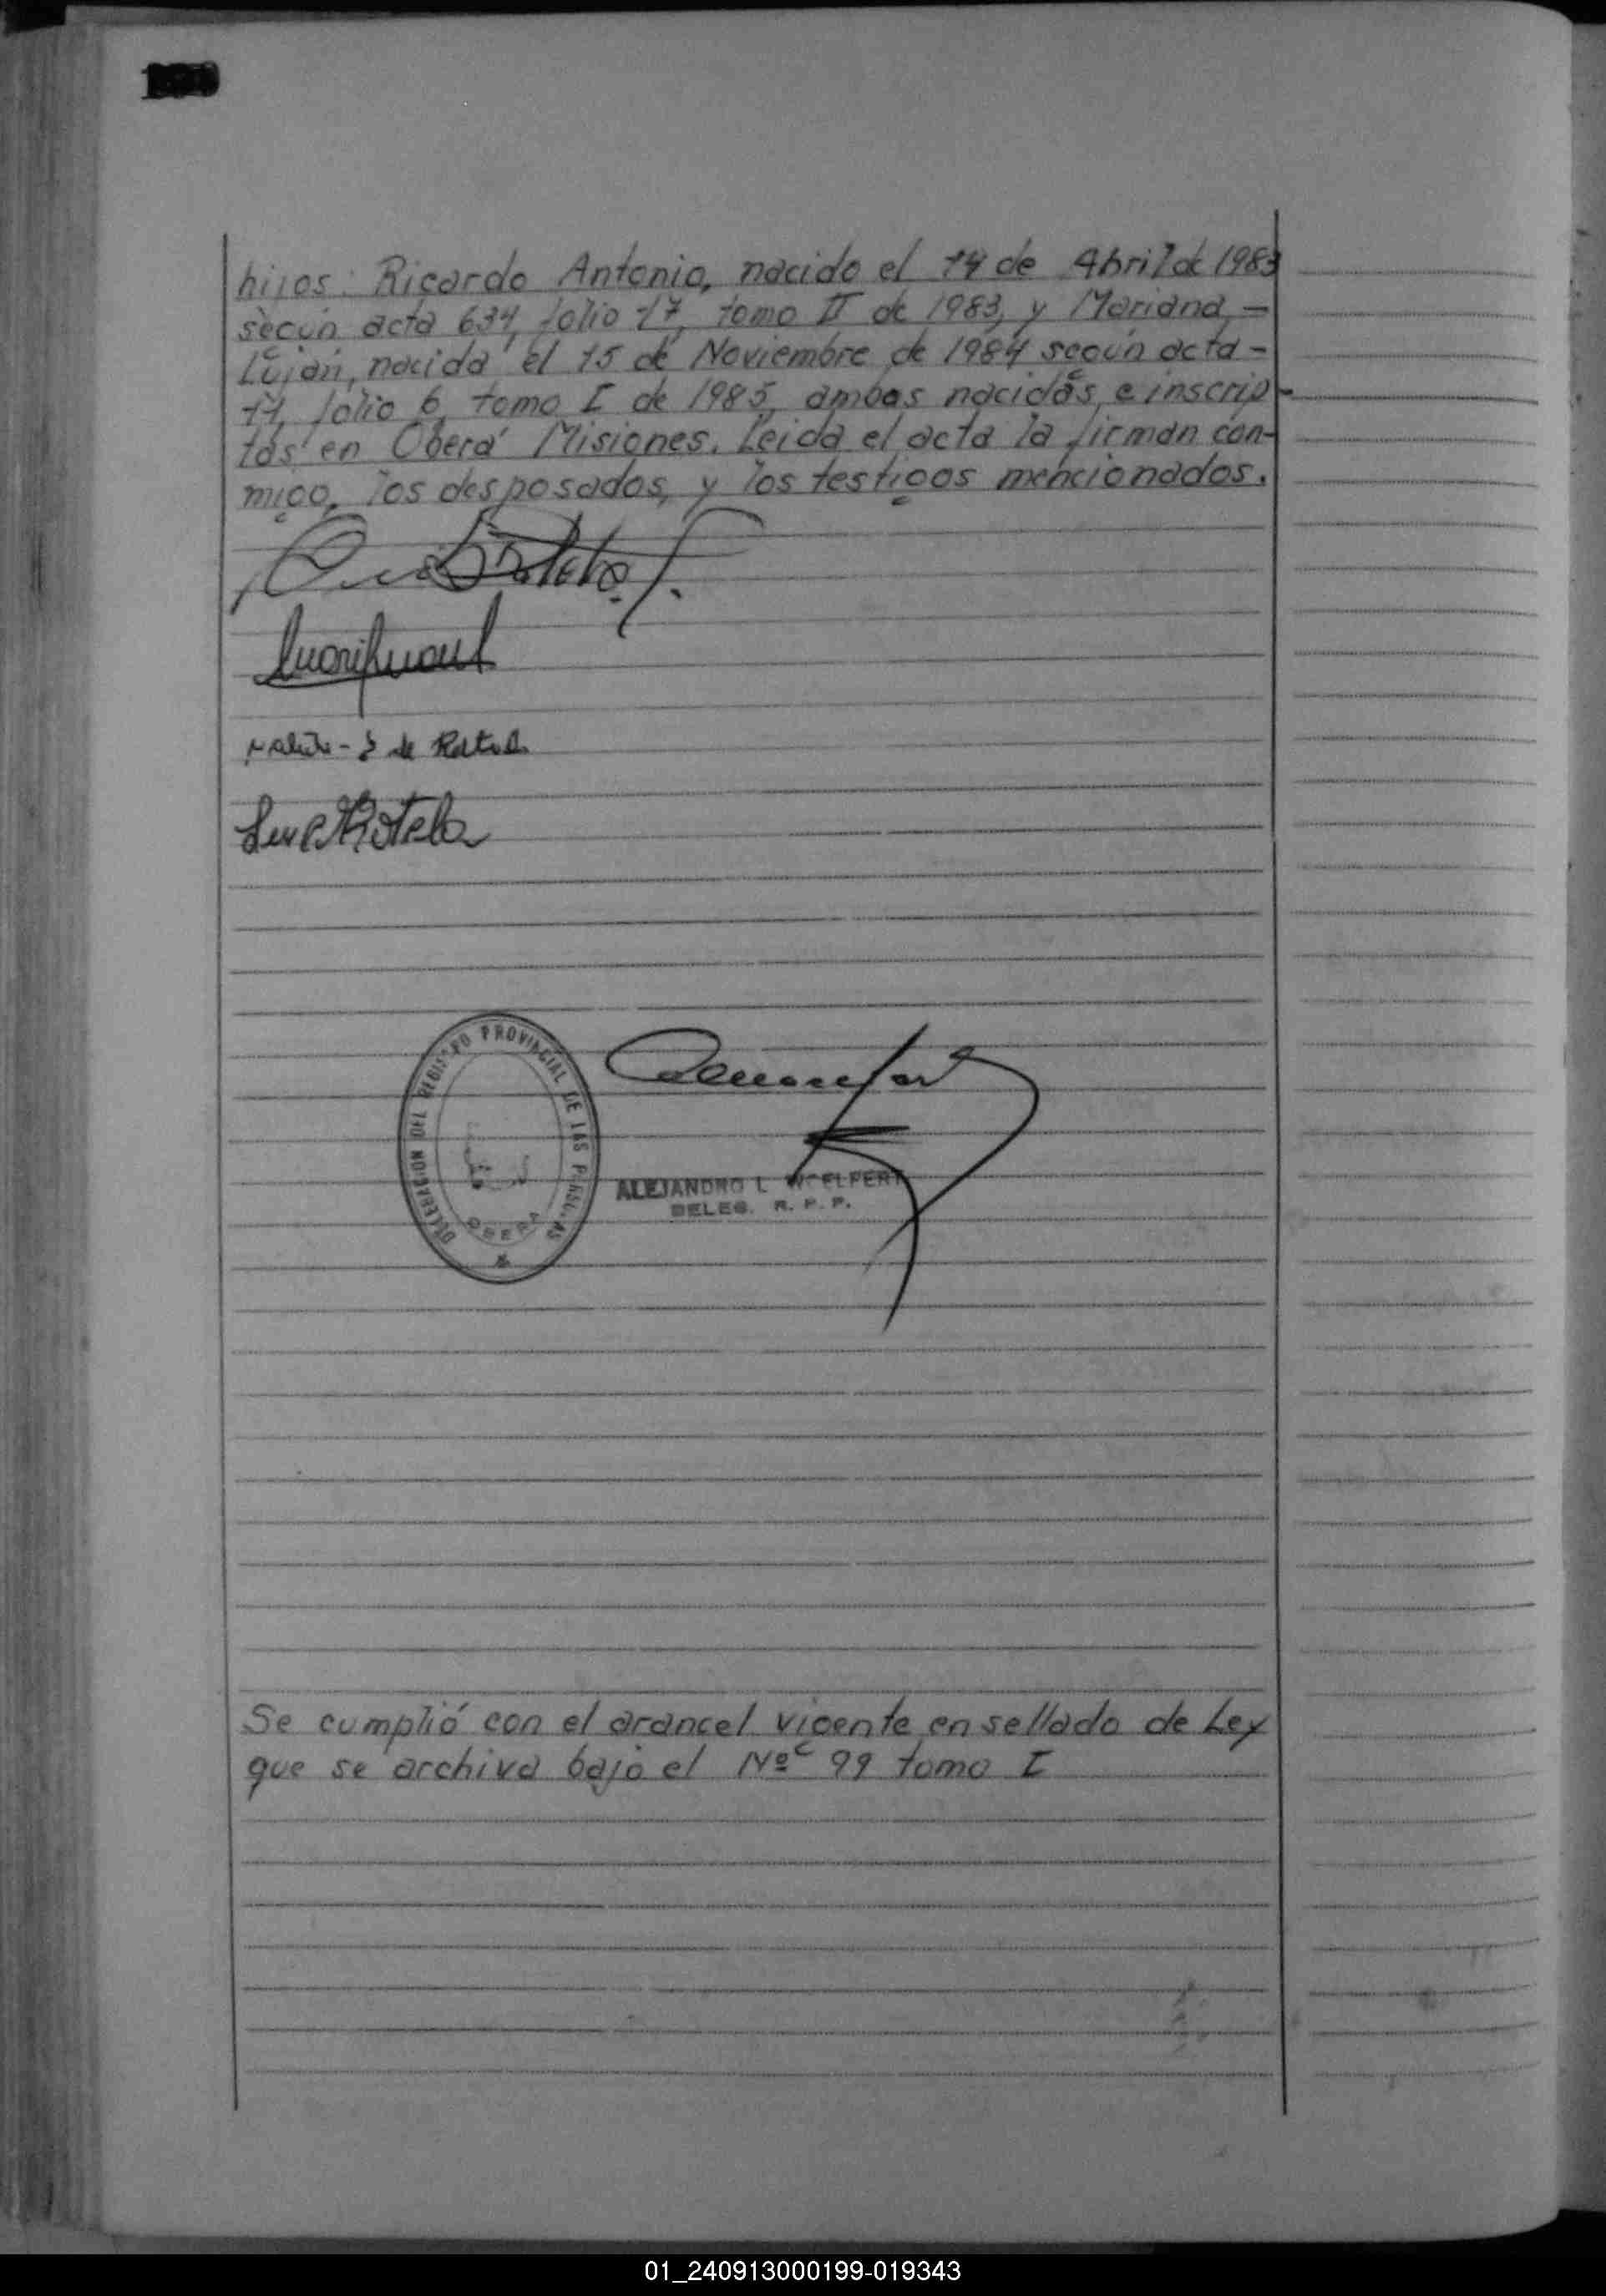 hijos: Ricardo Antonio, nacido el 14 de Abril de 1983
según acta 634, folio 17, tomo II de 1983, y Mariana -
Luján, nacida el 15 de Noviembre de 1984 según acta -
11, folio 6, tomo I de 1985, ambas nacidas, e inscrip-
tas en Oberá Misiones. Leida el acta la firman con-
migo, los desposados, y los testigos mencionados.
Rotela
DELEGACION DEL REGISTRO PROVINCIAL DE LAS PERSONAS
OBERA
ALEJANDRO L. WOELFERT
DELEG. R. P. P.
Se cumplió con el arancel vigente en sellado de Ley
que se archiva bajo el Nº 99 tomo I
01_240913000199-019343